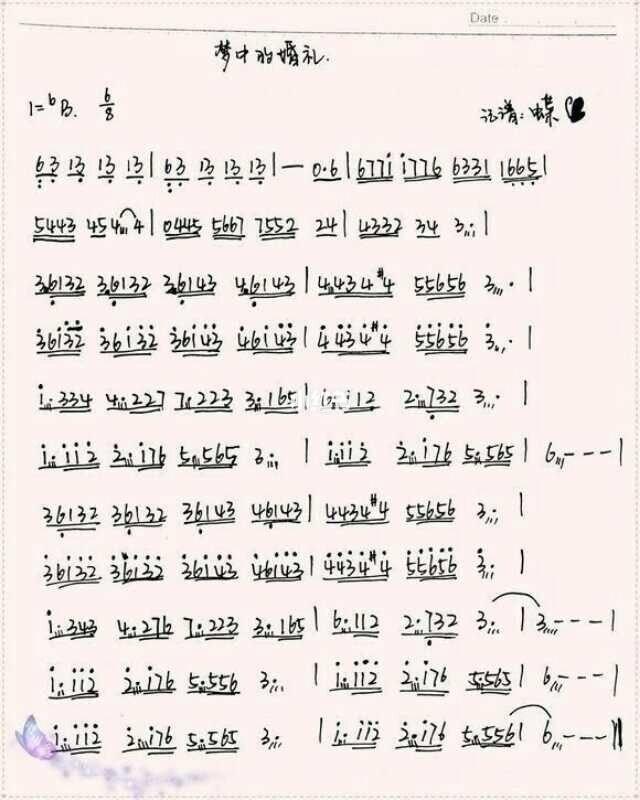 Date
梦中的婚礼.
1=ᵇB. 6/8 记谱:蝶
63 13 13 13 | 63 13 13 13 | — 0.6 | 6771 1776 6331 1665 |
5443 454 4 | 0445 5667 7552 24 | 4332 34 3 |
36132 36132 36143 46143 | 4434#4 55656 3 · |
36132 36132 36143 46143 | 4434#4 55656 3 · |
1.334 4.227 7.223 3.165 | 6.112 2.732 3 · |
1.112 2.176 5.565 3. | 1.112 2.176 5.565 | 6 - - - |
36132 36132 36143 46143 | 4434#4 55656 3. |
36132 36132 36143 46143 | 4434#4 55656 3. |
1.343 4.276 7.223 3.165 | 6.112 2.732 3. | 3. - - - |
1.112 2.176 5.556 3. | 1.112 2.176 5.565 | 6 - - - |
1.112 2.176 5.565 3. | 1.112 2.176 5.556 | 6 - - - ‖